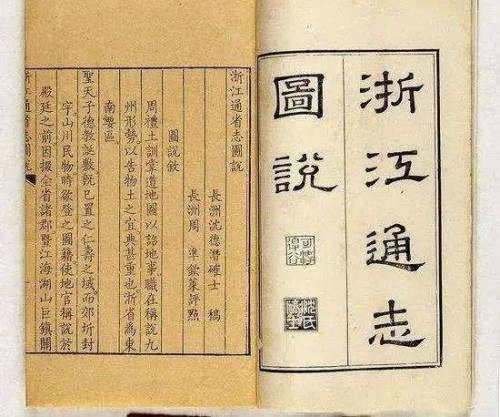 浙江通志
圖說
浙江通省志圖說
長洲沈德潛確士 稿
長洲周 準欽萊評點
圖說敘
周禮土訓掌道地圖以詔地事職在稱說九
州形勢以告物土之宜典甚重也浙省為東
南要區
聖天子德教誕敷既已置之仁壽之域而郊圻封
守山川民物時欲登之圖籍使地官稱說於
殿廷之前因掇全省諸郡暨江海湖山巨鎮關
浙江通省志圖說